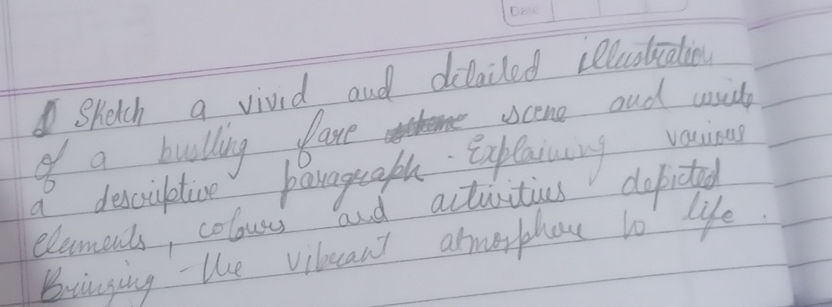 Date
Sketch a vivid and detailed illustration
of a bustling fare scene and write
a descriptive paragraph. Explaining various
elements, colours and activities depicted
Bringing the vibrant atmosphere to life.